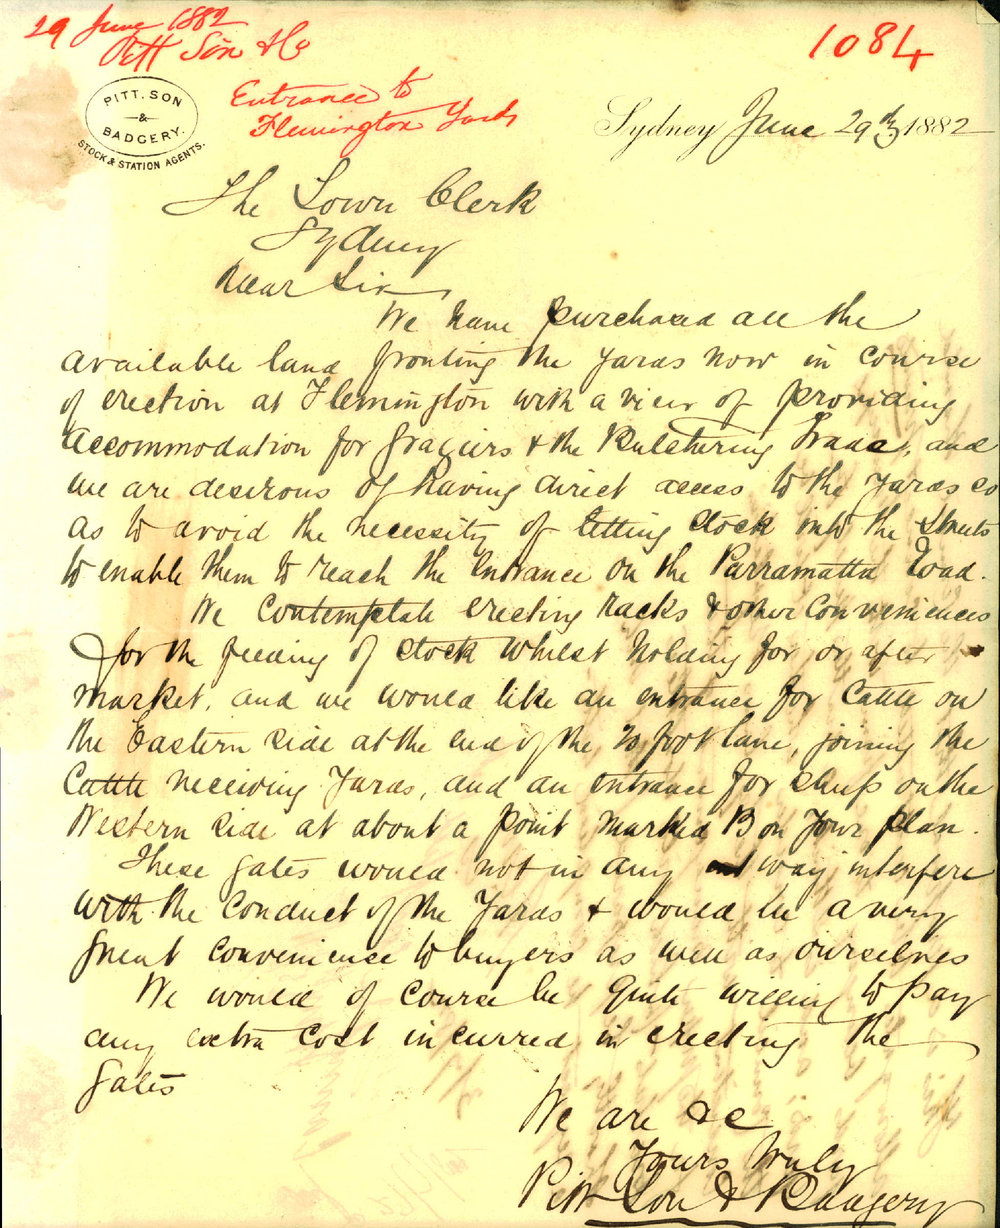 29 June 1882
Pitt Son & Co
1084
Entrance to
Flemington Yards
PITT, SON
&
BADGERY.
STOCK & STATION AGENTS.
Sydney June 29th 1882
The Town Clerk
Sydney
Dear Sir
We have purchased all the
available land fronting the yards now in course
of erection at Flemington with a view of providing
accommodation for graziers & the Butchering Trade, and
we are desirous of having direct access to the yards so
as to avoid the necessity of letting stock into the streets
to enable them to reach the Entrance on the Parramatta Road.
We contemplate erecting racks & other conveniences
for the feeding of stock whilst holding for or after
market, and we would like an entrance for Cattle on
the Eastern side at the end of the 20 foot lane, joining the
Cattle receiving Yards, and an entrance for sheep on the
Western side at about a point marked B on your plan.
These gates would not in any way interfere
with the conduct of the Yards & would be a very
great convenience to buyers as well as ourselves
We would of course be quite willing to pay
any extra cost incurred in erecting the
gates
We are &c
Yours truly
Pitt Son & Badgery